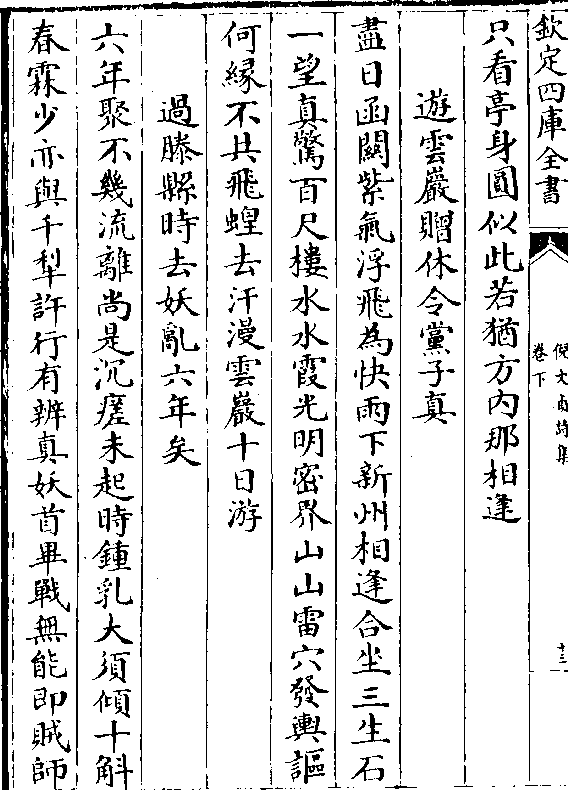 欽定四庫全書
倪文貞詩集
卷下
十三
只看亭身圓似此若猶方内那相逢
遊雲巖贈休令黨子真
盡日函關紫氣浮飛為快雨下新州相逢合坐三生石
一望真驚百尺樓水水霞光明密界山山雷穴發輿謳
何緣不共飛蝗去汗漫雲巖十日游
過滕縣時去妖亂六年矣
六年聚不幾流離尚是沉瘥未起時鍾乳大須傾十斛
春霖少亦與千犁許行有辨真妖首畢戰無能即賊師